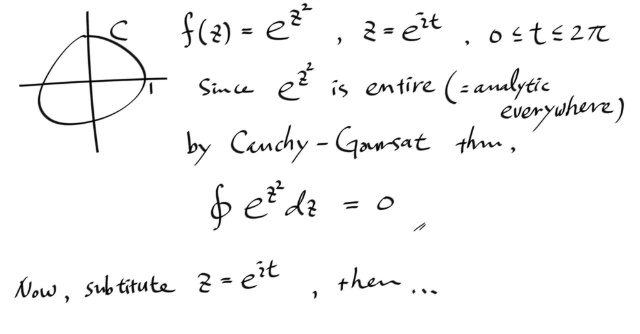 C
1
f(z) = e^{z^2} , z = e^{it} , 0 ≤ t ≤ 2π
Since e^{z^2} is entire (= analytic
everywhere)
by Cauchy - Goursat thm,
∮ e^{z^2} dz = 0 〃
Now, substitute z = e^{it} , then ...